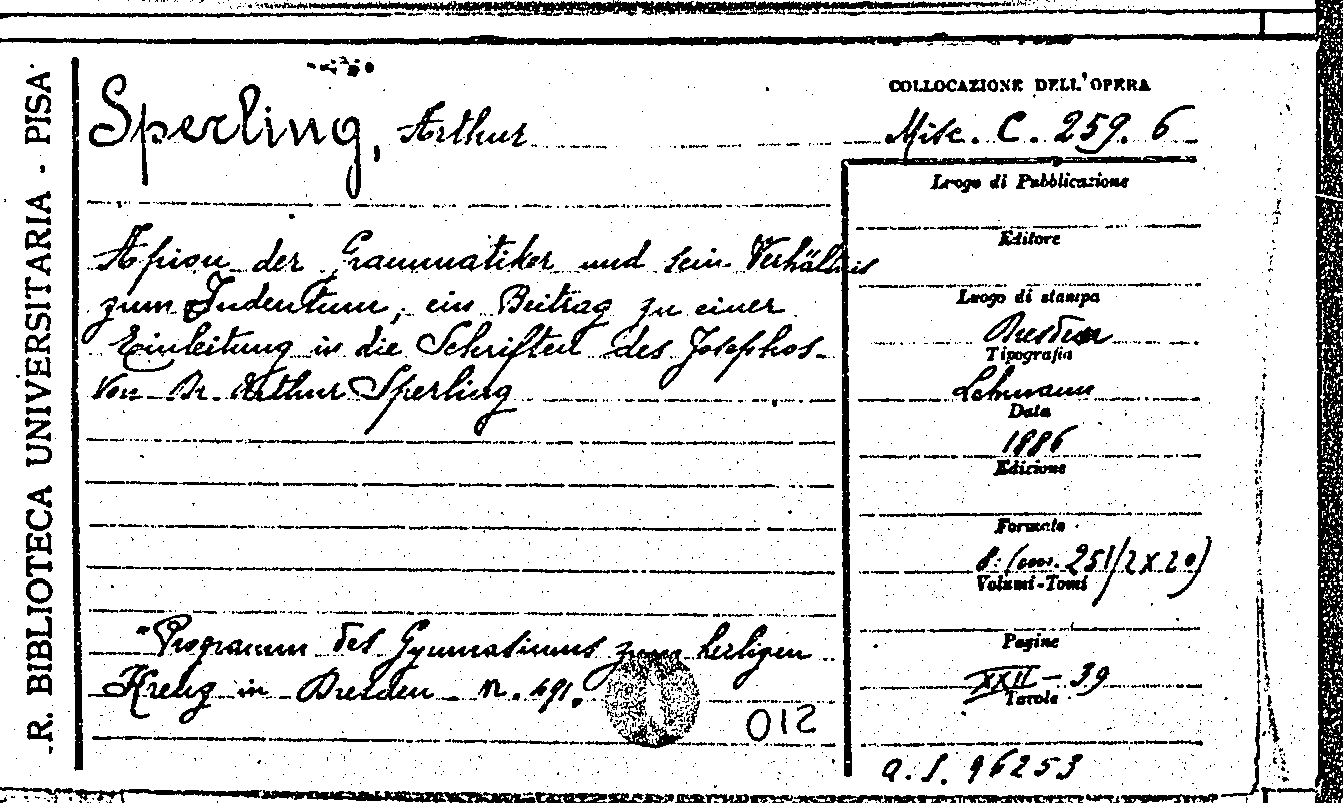 R. BIBLIOTECA UNIVERSITARIA - PISA
Sperling, Arthur
Apion der Grammatiker und sein Verhältnis
zum Judentum, ein Beitrag zu einer
Einleitung in die Schriften des Josephos -
Von Dr. Arthur Sperling
"Programm des Gymnasiums zum heiligen
Kreuz in Dresden - n. 491.
012
COLLOCAZIONE DELL'OPERA
Misc. C. 259. 6
Luogo di Pubblicazione
Editore
Luogo di stampa
Dresden
Tipografia
Lehmann
Data
1886
Edizione
Formato
8: (cm. 25 1/2 x 20)
Volumi-Tomi
Pagine
XXII - 39
Tavole
a. S. 96253